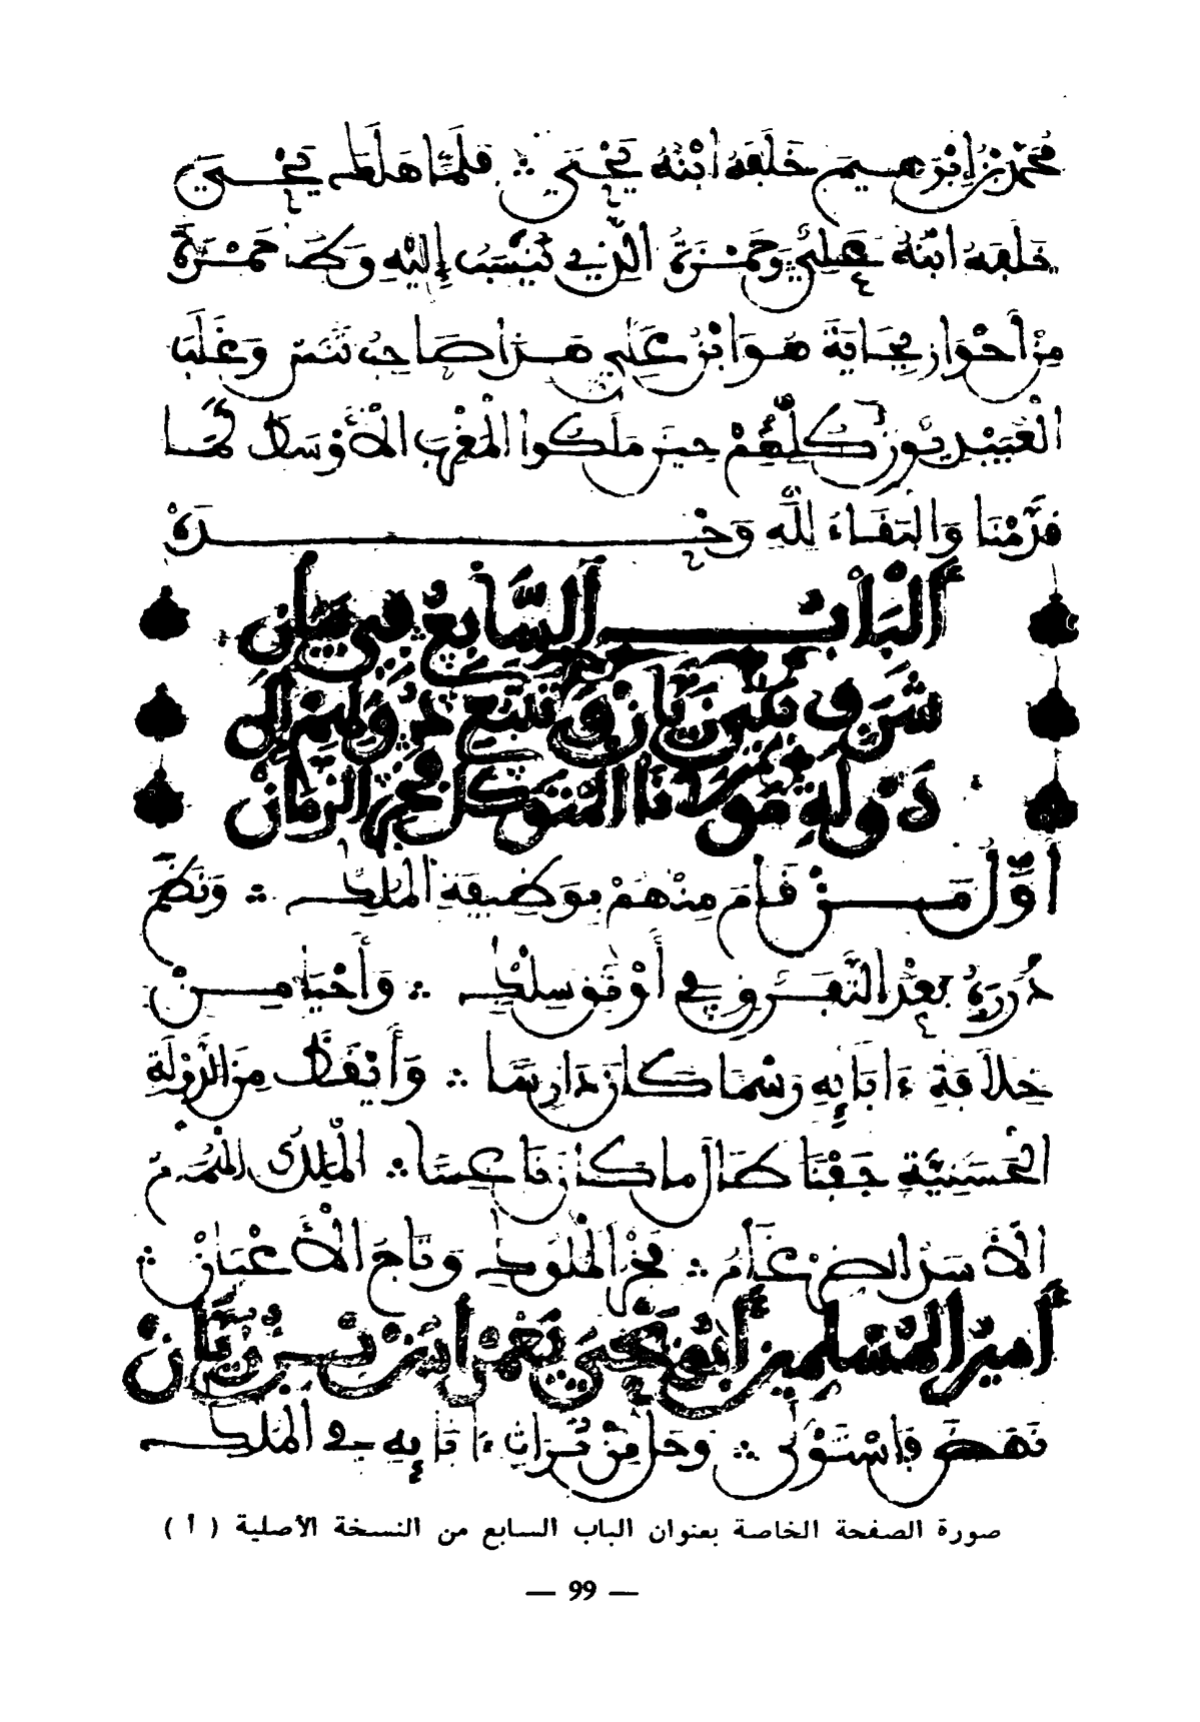 محمد بن ابرهيم خلفه ابنه يحيى ∴ فلما هلك يحيى
خلفه ابنه علي وحمزة الذي ينسب إليه وطـ حمزة
من أحواز بجاية هو ابن علي هذا صاحب تنس وغلب
العبيديون كلهم حين ملكوا المغرب الأوسط كما
قدمنا والبقاء لله وحده
الباب السابع في بيان
شرف بني زيان وتتبع دولهم إلى
دولة مولانا المتوكل فخر الزمان
أول من قام منهم بوظيفة الملك ∴ ونظم
درره بعد التفرق في أوثق سلك ∴ وأحيا من
خلافة ءابايه رسما كان دارسا ∴ وأيقظ من الدولة
الحسنية جفنا طال ما كان ناعسا ∴ الملك الهمام
الاسد الضرغام ∴ فخر الملوك وتاج الأعيان ∴
أمير المسلمين أبو يحيى يغمراسن بن زيان
نهض فاستولى ∴ وحاز من تراث ءابايه في الملك
صورة الصفحة الخاصة بعنوان الباب السابع من النسخة الأصلية ( أ )
— 99 —